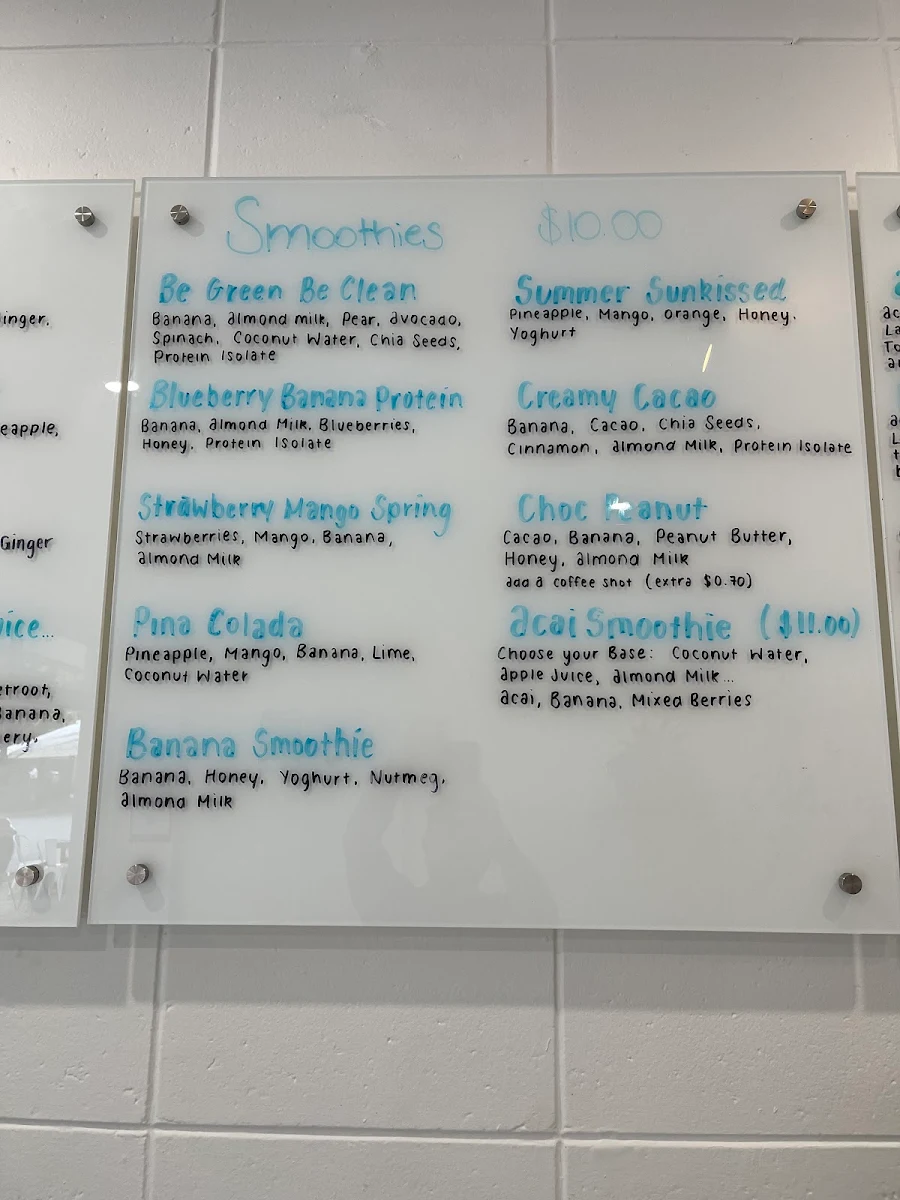 inger.
eapple,
Ginger
ice...
etroot,
Banana,
ery.
Smoothies $10.00
Be Green Be Clean
Banana, almond milk, Pear, avocado,
Spinach, Coconut Water, Chia Seeds,
Protein Isolate
Blueberry Banana Protein
Banana, almond Milk, Blueberries,
Honey, Protein Isolate
Strawberry Mango Spring
Strawberries, Mango, Banana,
almond Milk
Pina Colada
Pineapple, Mango, Banana, Lime,
Coconut Water
Banana Smoothie
Banana, Honey, Yoghurt, Nutmeg,
almond Milk
Summer Sunkissed
Pineapple, Mango, orange, Honey.
Yoghurt
Creamy Cacao
Banana, Cacao, Chia Seeds,
Cinnamon, almond Milk, Protein Isolate
Choc Peanut
Cacao, Banana, Peanut Butter,
Honey, almond Milk
add a coffee shot (extra $0.70)
acai Smoothie ($11.00)
Choose your Base: Coconut Water,
apple Juice, almond Milk...
acai, Banana, Mixed Berries